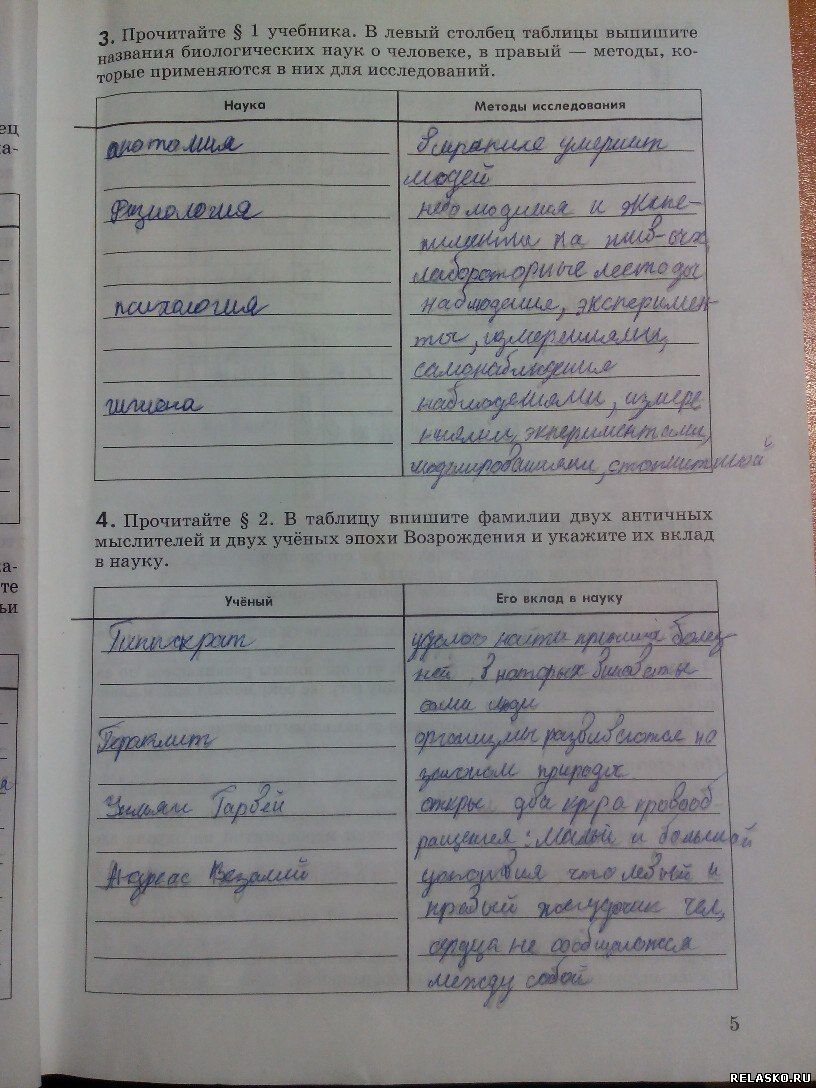 3. Прочитайте § 1 учебника. В левый столбец таблицы выпишите
названия биологических наук о человеке, в правый — методы, ко-
торые применяются в них для исследований.
Наука
Методы исследования
анатомия
людей
физиология
лабораторные методы
психология
наблюдения, эксперимен-
ты, измерениями,
самонаблюдения
гигиена
наблюдениями, измере
ниями, экспериментами,
моделированиями,
4. Прочитайте § 2. В таблицу впишите фамилии двух античных
мыслителей и двух учёных эпохи Возрождения и укажите их вклад
в науку.
Учёный
Его вклад в науку
Гиппократ
удалось найти болез
ней, в которых виноваты
сами люди
Гераклит
организмы развиваются по
природы
Уильям Гарвей
откры два круга кровооб-
ращения: малый и большой
Андреас Везалий
что левый и
правый желудочки чел,
сердца не сообщаются
между собой
5
ец
ка-
ка-
те
ьи
а
RELASKO.RU